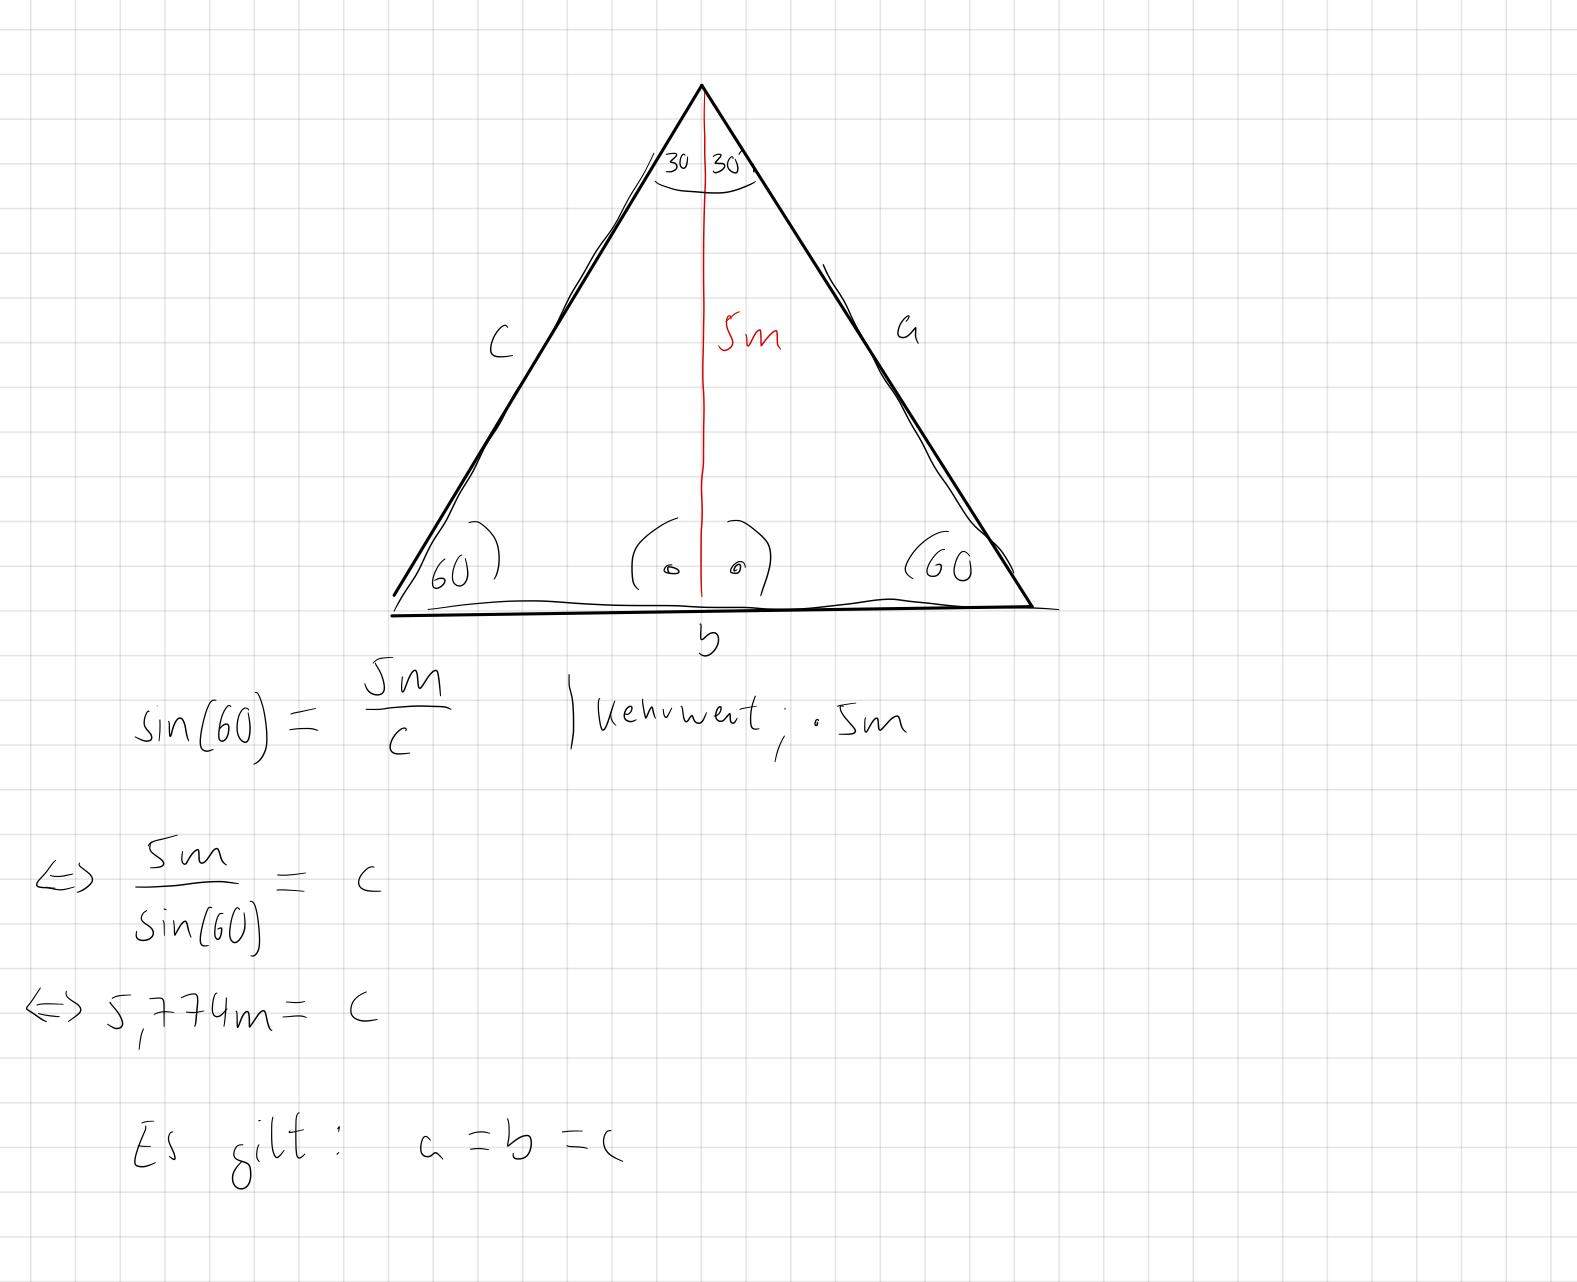 30 30
c 5m a
60 60
b
sin(60) = 5m/c | Kehrwert; · 5m
⇔ 5m/sin(60) = c
⇔ 5,774m = c
Es gilt: a = b = c